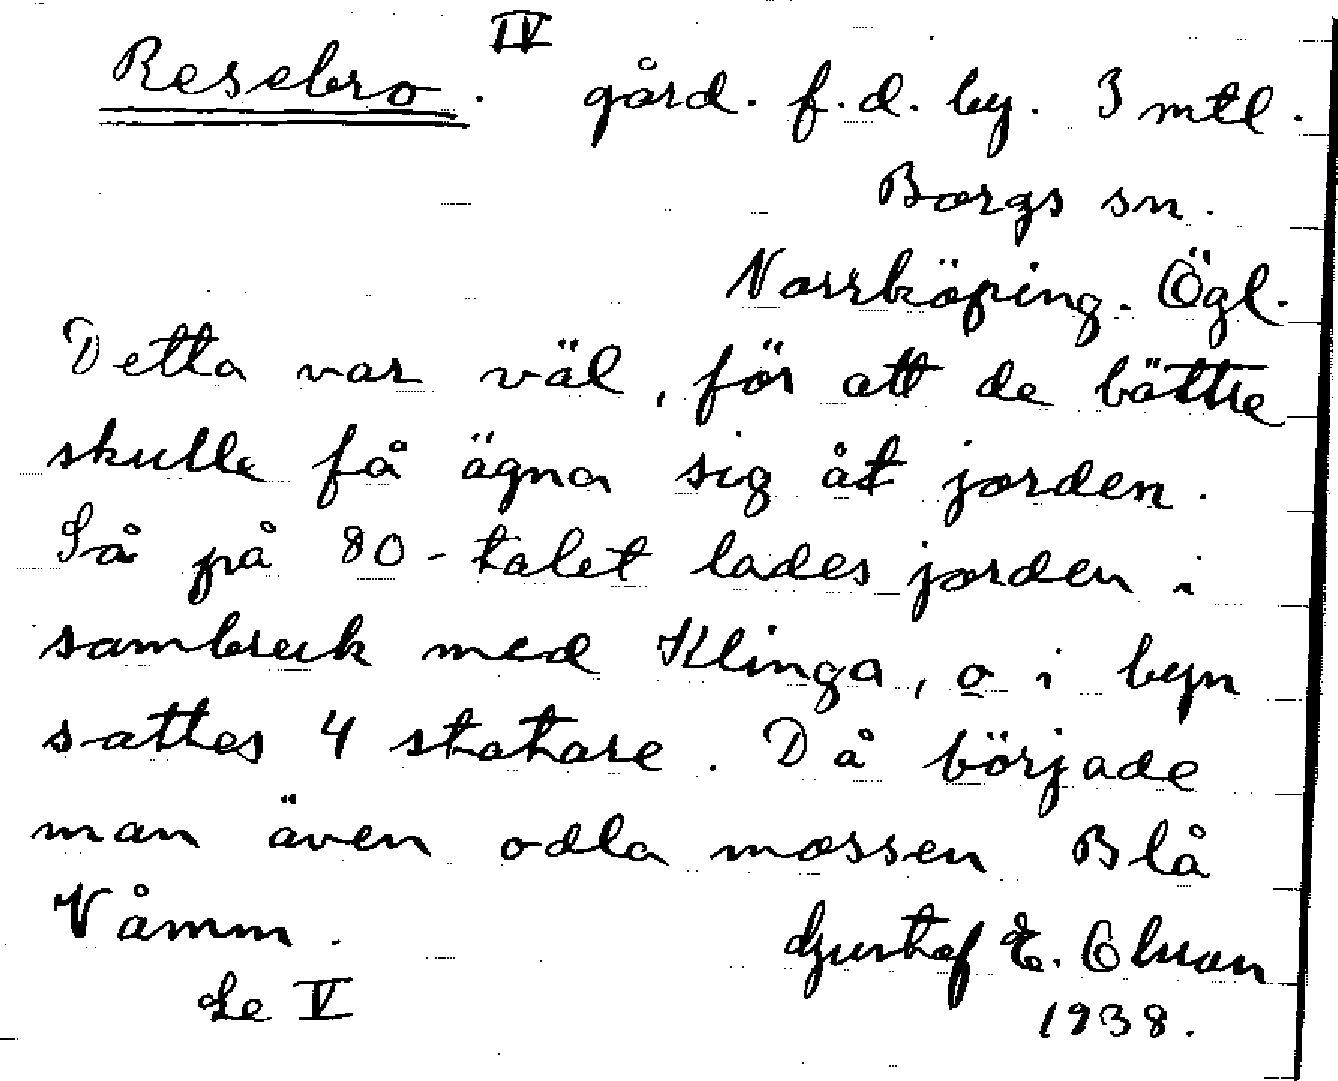 IV
Resebro. gård. f.d. by. 3 mtl.
Borgs sn.
Norrköping. Ögl.
Detta var väl, för att de bättre
skulle få ägna sig åt jorden.
Så på 80-talet lades jorden i
sambruk med Klinga, o i byn
sattes 4 statare. Då började
man även odla mossen Blå
Våmm.
Gustaf E. Olsson
Se V
1938.